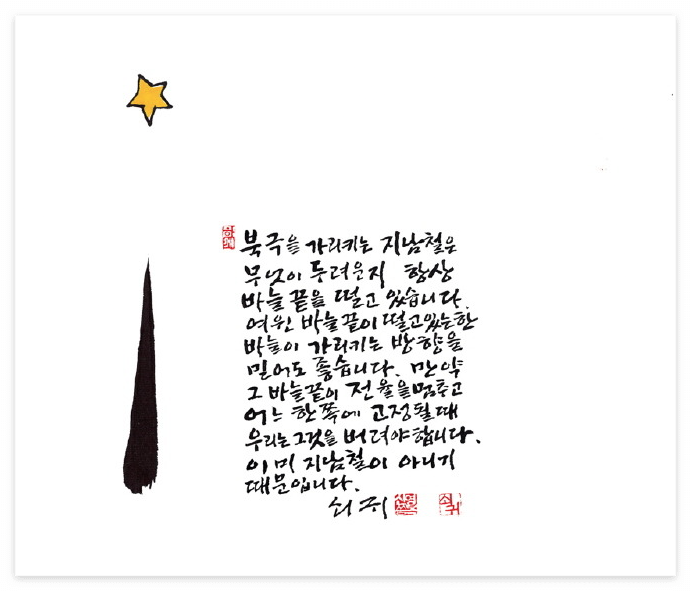 함께
북극을 가리키는 지남철은
무엇이 두려운지 항상
바늘 끝을 떨고 있습니다.
여윈 바늘 끝이 떨고 있는 한
바늘이 가리키는 방향을
믿어도 좋습니다. 만약
그 바늘 끝이 전율을 멈추고
어느 한쪽에 고정될 때
우리는 그것을 버려야 합니다.
이미 지남철이 아니기
때문입니다.
쇠귀 쇠귀